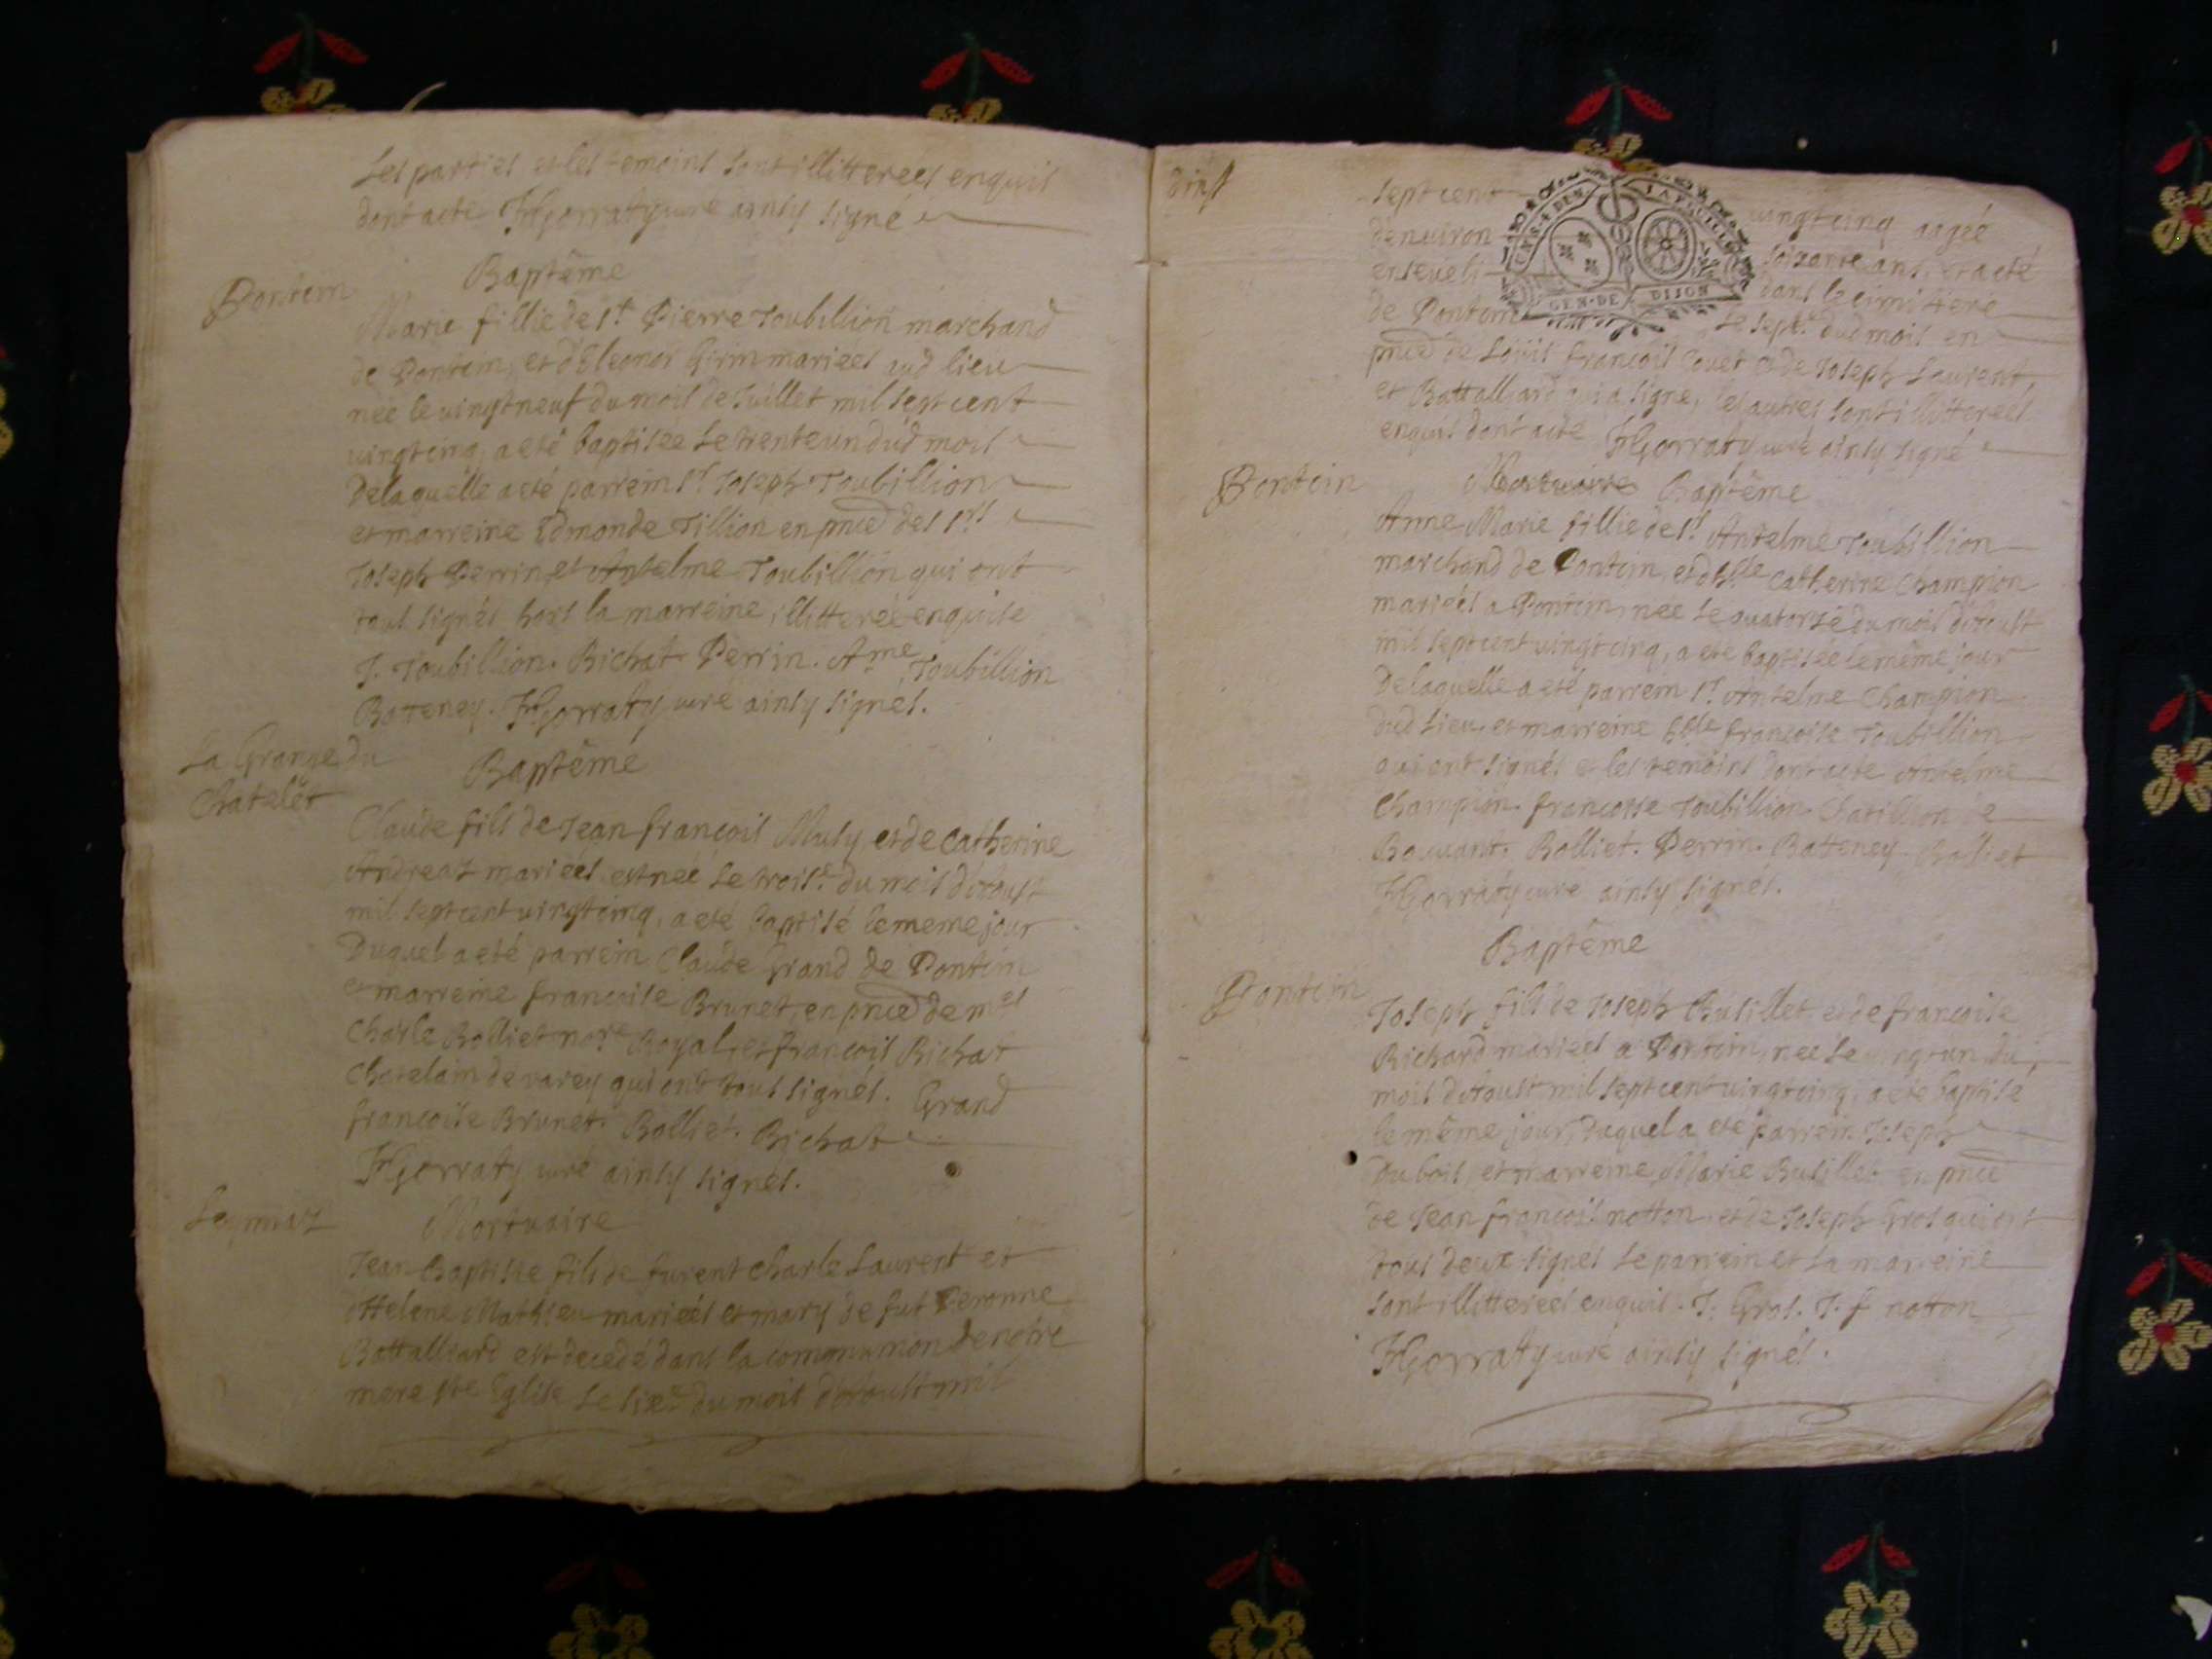 Les parties et les temoins sont illitterées enquis
dont acte FHGorraty curé ainsy signé
Pontein
Baptême
Marie fillie de sr. Pierre Toubillion marchand
de Pontein, et d'Eleonor mariées aud lieu
née le vingt neuf du mois de Juillet mil sept cent
vingt cinq, a eté baptisée le trente un dud mois
de laquelle a eté parrein sr. Joseph Toubillion
et marreine Edmonde Tillion en pnce des srs
Joseph Perrin et Antelme Toubillion qui ont
tous signés hors la marreine illitterée enquise
J. Toubillion. Richat. Perrin. Ame. Toubillion
Batteney. FHGorraty curé ainsy signés.
La Grange du
Chatelêt
Baptême
Claude fils de Jean françois Muly, et de Catherine
Andreaz mariées est née le trois.e du mois d'Aoust
mil sept cent vingt cinq, a eté baptisé le meme jour
Duquel a eté parrein Claude Grand de Pontein
et marreine françoise Brunet, en pnce de mes
Charle Rolliet nore Royal, et françois Richat
Chatelain de varey qui ont tous signés. Grand
françoise Brunet. Rolliet. Richat
FHGorraty curé ainsy signés.
Leymiaz
Mortuaire
Jean Baptiste fils de furent Charle Laurent et
Helene Mathieu mariées et mary de fut Peronne
Battalliard est decedé dans la communion de notre
mere ste Eglise le six.e du mois d'Aoust mil
sept cent vingt cinq aagée
denviron soizante ans, et a eté
enseveli dans le cimittere
de Pontein le sept.e dud mois en
pnce de Loüis françois et de Joseph Laurent,
et Battalliard qui a signe, les autres sont illitterées
enquis dont acte FHGorraty curé ainsy signé
GEN·DE DIJON
Pontein
Mortuaire Baptême
Anne Marie fillie de sr. Antelme Toubillion
marchand de Pontein, et dlle Catherine Champion
mariées a Pontein, née le quatorze du mois d'Aoust
mil sept cent vingt cinq, a eté baptisée le même jour
De laquelle a eté parrein sr. Antelme Champion
dud lieu et marreine françoise Toubillion
qui ont signés et les temoins dont acte Antelme
Champion. françoise Toubillion. Chatillion
Bouvant. Rolliet. Perrin. Batteney
FHGorraty curé ainsy signés.
Pontein
Baptême
Joseph fils de Joseph Bulillet et de françoise
Richard mariées a Pontein, née le vingt un du
mois d'Aoust mil sept cent vingt cinq, a eté baptisé
le même jour, Duquel a eté parrein Joseph
Dubois, et marreine Marie Bulillet en pnce
de Jean françois notton et de Joseph Gros qui ont
tous deux signés le parrein et la marreine
sont illitterées enquis. J. Gros. J. f notton
FHGorraty curé ainsy signés.